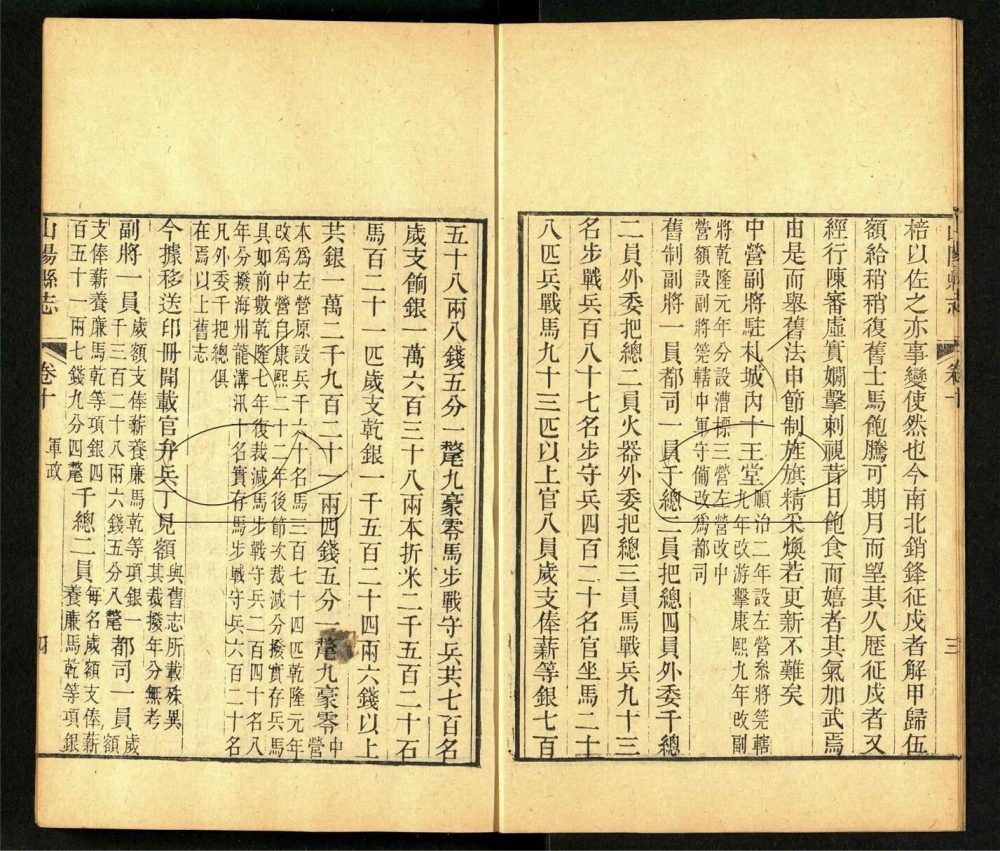 棓以佐之亦事變使然也今南北銷鋒征戍者解甲歸伍
額給稍稍復舊士馬飽騰可期月而望其久歷征戍者又
經行陳審虛實嫻擊刺視昔日飽食而嬉者其氣加武焉
由是而舉舊法申節制旌旗精采煥若更新不難矣
中營副將駐札城內十王堂順治二年設左營叅將筦轄
九年改游擊康熙九年改副
將乾隆元年分設漕標三營左營改中
營額設副將筦轄中軍守備改爲都司
舊制副將一員都司一員千總二員把總四員外委千總
二員外委把總二員火器外委把總三員馬戰兵九十三
名步戰兵百八十七名步守兵四百二十名官坐馬二十
八匹兵戰馬九十三匹以上官八員歲支俸薪等銀七百
三
五十八兩八錢五分一氂九豪零馬步戰守兵共七百名
歲支餉銀一萬六百三十八兩本折米二千五百二十石
馬百二十一匹歲支乾銀一千五百二十四兩六錢以上
共銀一萬二千九百二十一兩四錢五分一氂九豪零中營
本爲左營原設兵千六十名馬三百七十四匹乾隆元年
改爲中營自康熙二十二年後節次裁減分撥實存兵馬
具如前數乾隆七年復裁減馬步戰守兵二百四十名八
年分撥海州龍溝汛十名實存馬步戰守兵六百二十名
凡外委千把總俱
在焉以上舊志
今據移送印冊開載官弁兵丁見額與舊志所載殊異
其裁撥年分無考
副將一員歲額支俸薪養廉馬乾等項銀一
千三百二十八兩六錢五分八氂都司一員歲額
支俸薪養廉馬乾等項銀四
百五十一兩七錢九分四氂千總二員每名歲額支俸薪
養廉馬乾等項銀
山陽縣志
卷十
軍政
四